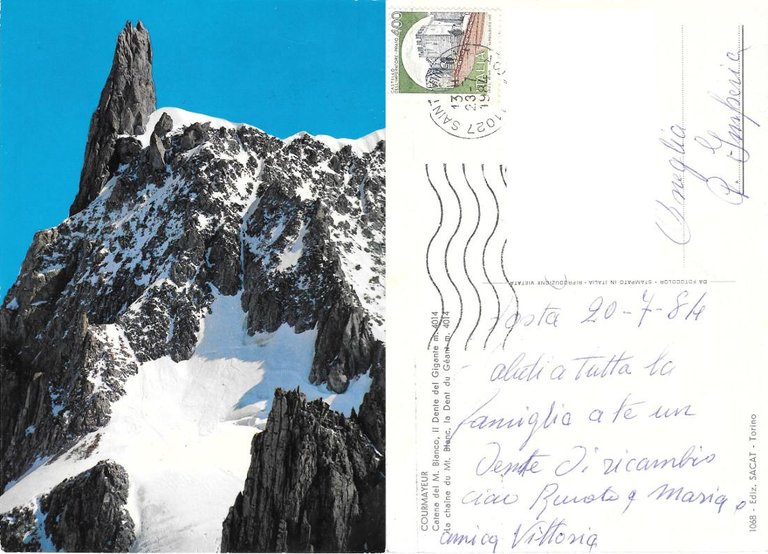 400
CASTELLO
ITALIA
11027 SAINT
13-
23-
1984
Oneglia
P. Imperia
DA FOTOCOLOR - STAMPATO IN ITALIA - RIPRODUZIONE VIETATA
COURMAYEUR
Catena del M. Bianco, il Dente del Gigante m. 4014
La chaîne du Mt. Blanc, la Dent du Géant m. 4014
Aosta 20-7-84
aluti a tutta la
famiglia a te un
Dente Di ricambio
ciao e Maria
amica Vittoria
1068 - Ediz. SACAT - Torino